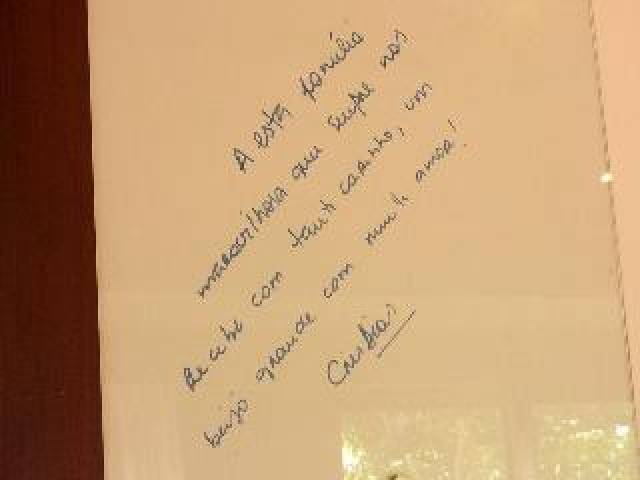 A esta família
maravilhosa que sempre nos
recebe com tanto carinho, um
beijo grande com muito amor!